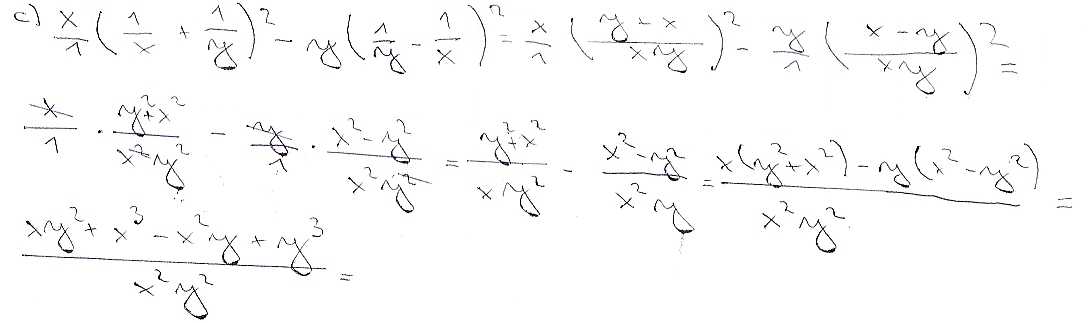 c) x/1 (1/x + 1/y)² - y(1/y - 1/x)² = x/1 (y+x/xy)² - y/1 (x-y/xy)² =
x/1 · y²+x²/x²y² - y/1 · x²-y²/x²y² = y²+x²/xy² - x²-y²/x²y = x(y²+x²)-y(x²-y²)/x²y² =
xy²+x³-x²y+y³/x²y² =